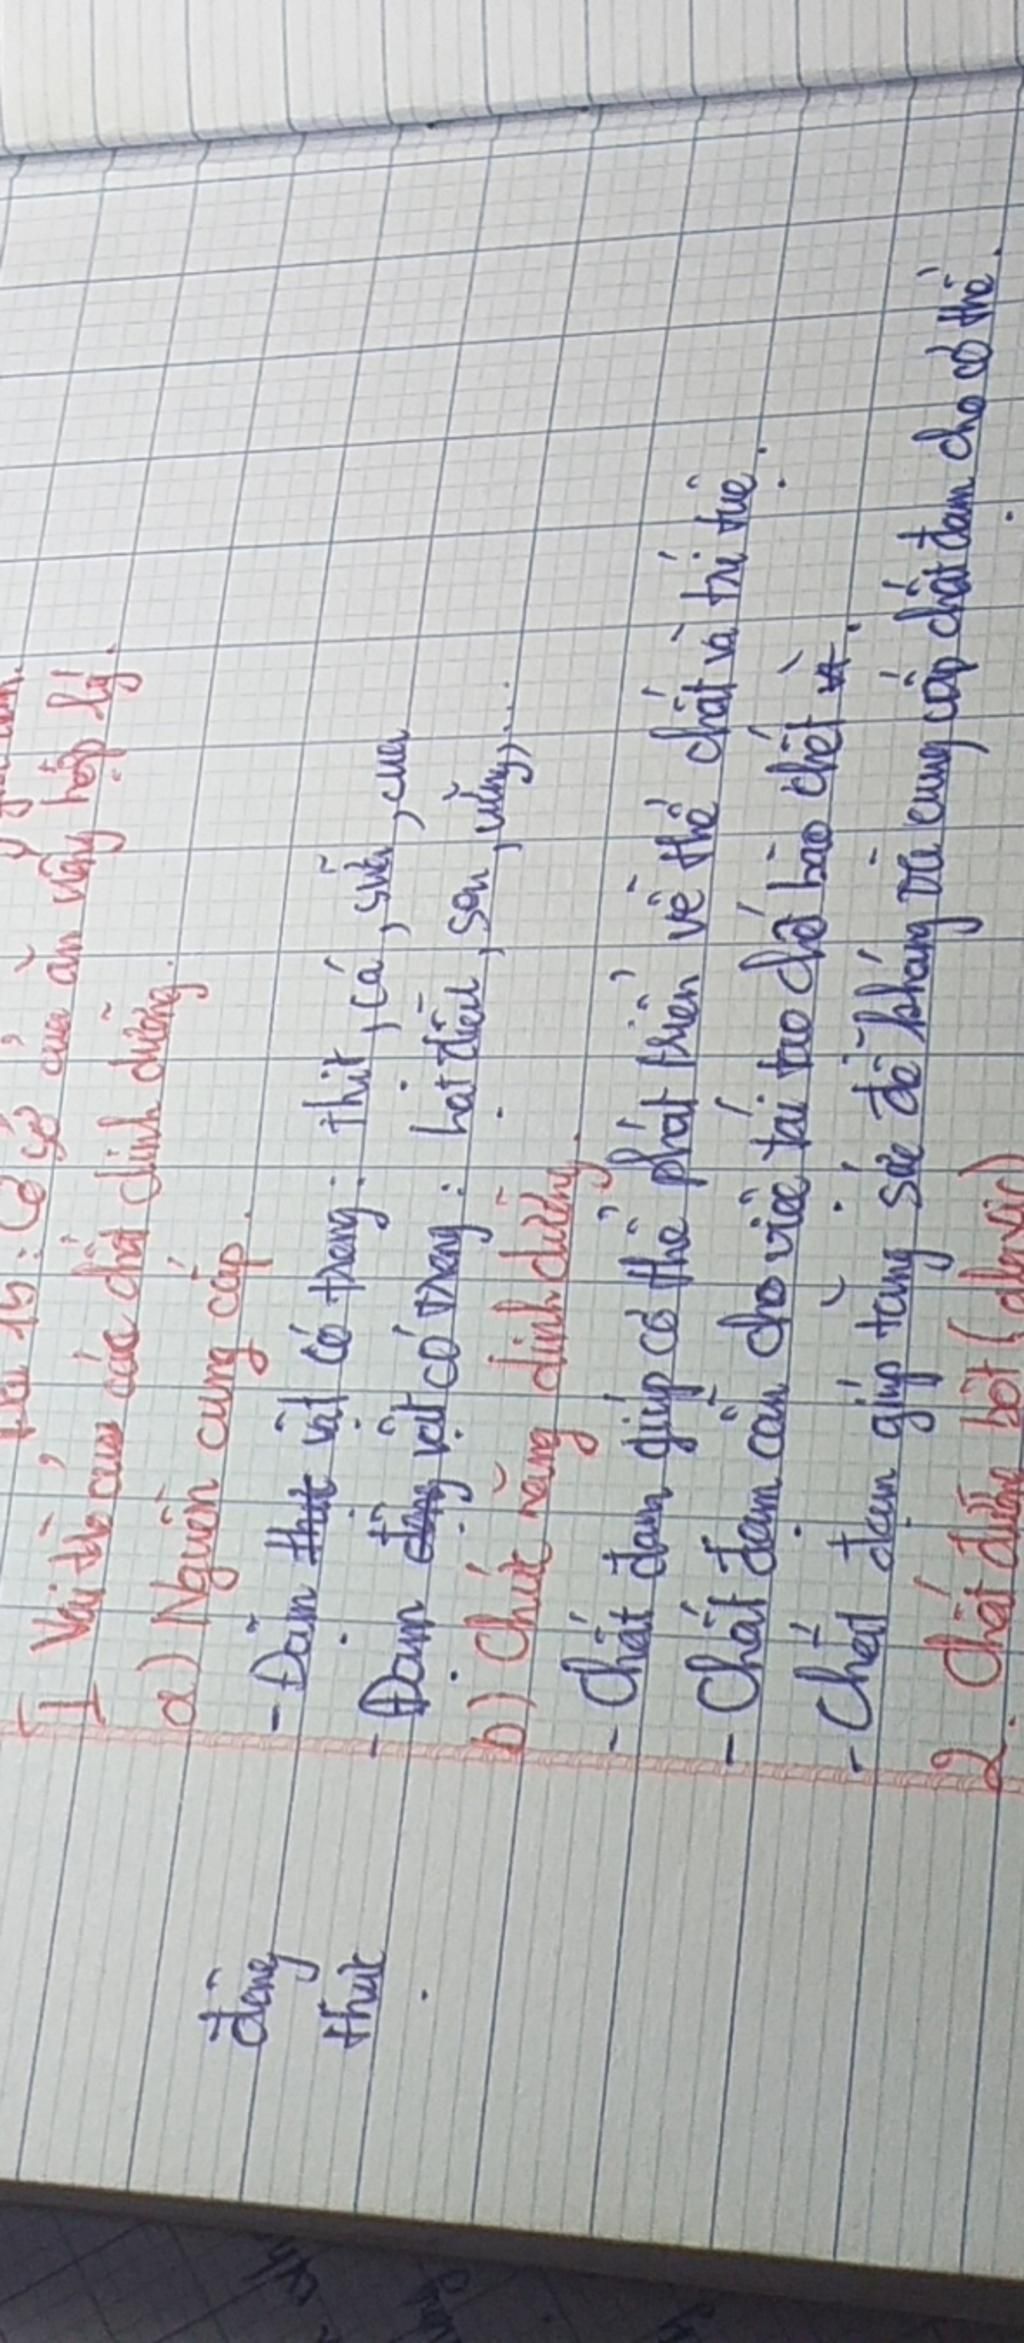 15: Cơ sở của ăn uống hợp lý.
I Vai trò của các chất dinh dưỡng.
a) Nguồn cung cấp.
động - Đạm thực vật có trong: thịt, cá, sữa, cua
thực - Đạm động vật có trong: hạt điều, sen, vừng,...
b) Chức năng dinh dưỡng.
- Chất đạm giúp cơ thể phát triển về thể chất và trí tuệ.
- Chất đạm cần cho việc tái tạo chế bào chết và.
- Chất đạm giúp tăng sức đề kháng và cung cấp chất đạm cho cơ thể.
2. Chất đường bột (